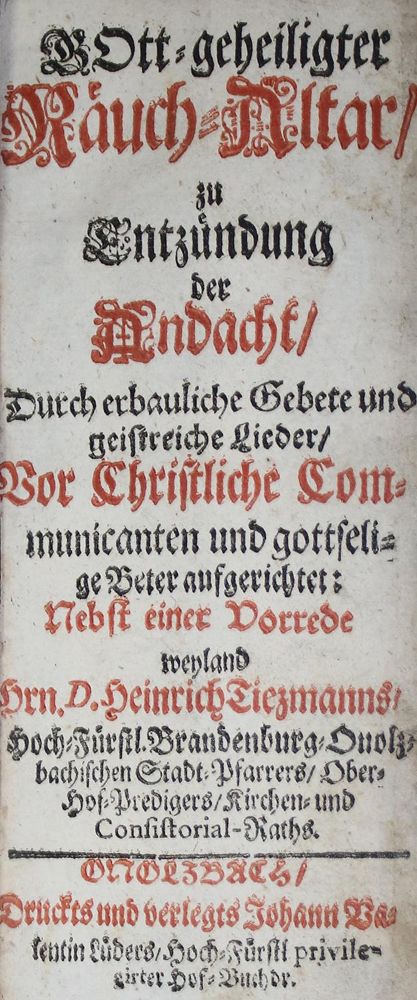 GOtt-geheiligter
Räuch-Altar/
zu
Entzündung
der
Andacht/
Durch erbauliche Gebete und
geistreiche Lieder/
Vor Christliche Com-
municanten und gottseli-
ge Beter aufgerichtet:
Nebst einer Vorrede
weyland
Hrn. D. Heinrich Tiezmanns/
Hoch-Fürstl. Brandenburg-Onolz-
bachischen Stadt-Pfarrers/ Ober-
Hof-Predigers/ Kirchen- und
Consistorial-Raths.
ONOLZBACH/
Druckts und verlegts Johann Va-
lentin Lüders/ Hoch-Fürstl privile-
girter Hof-Buchdr.